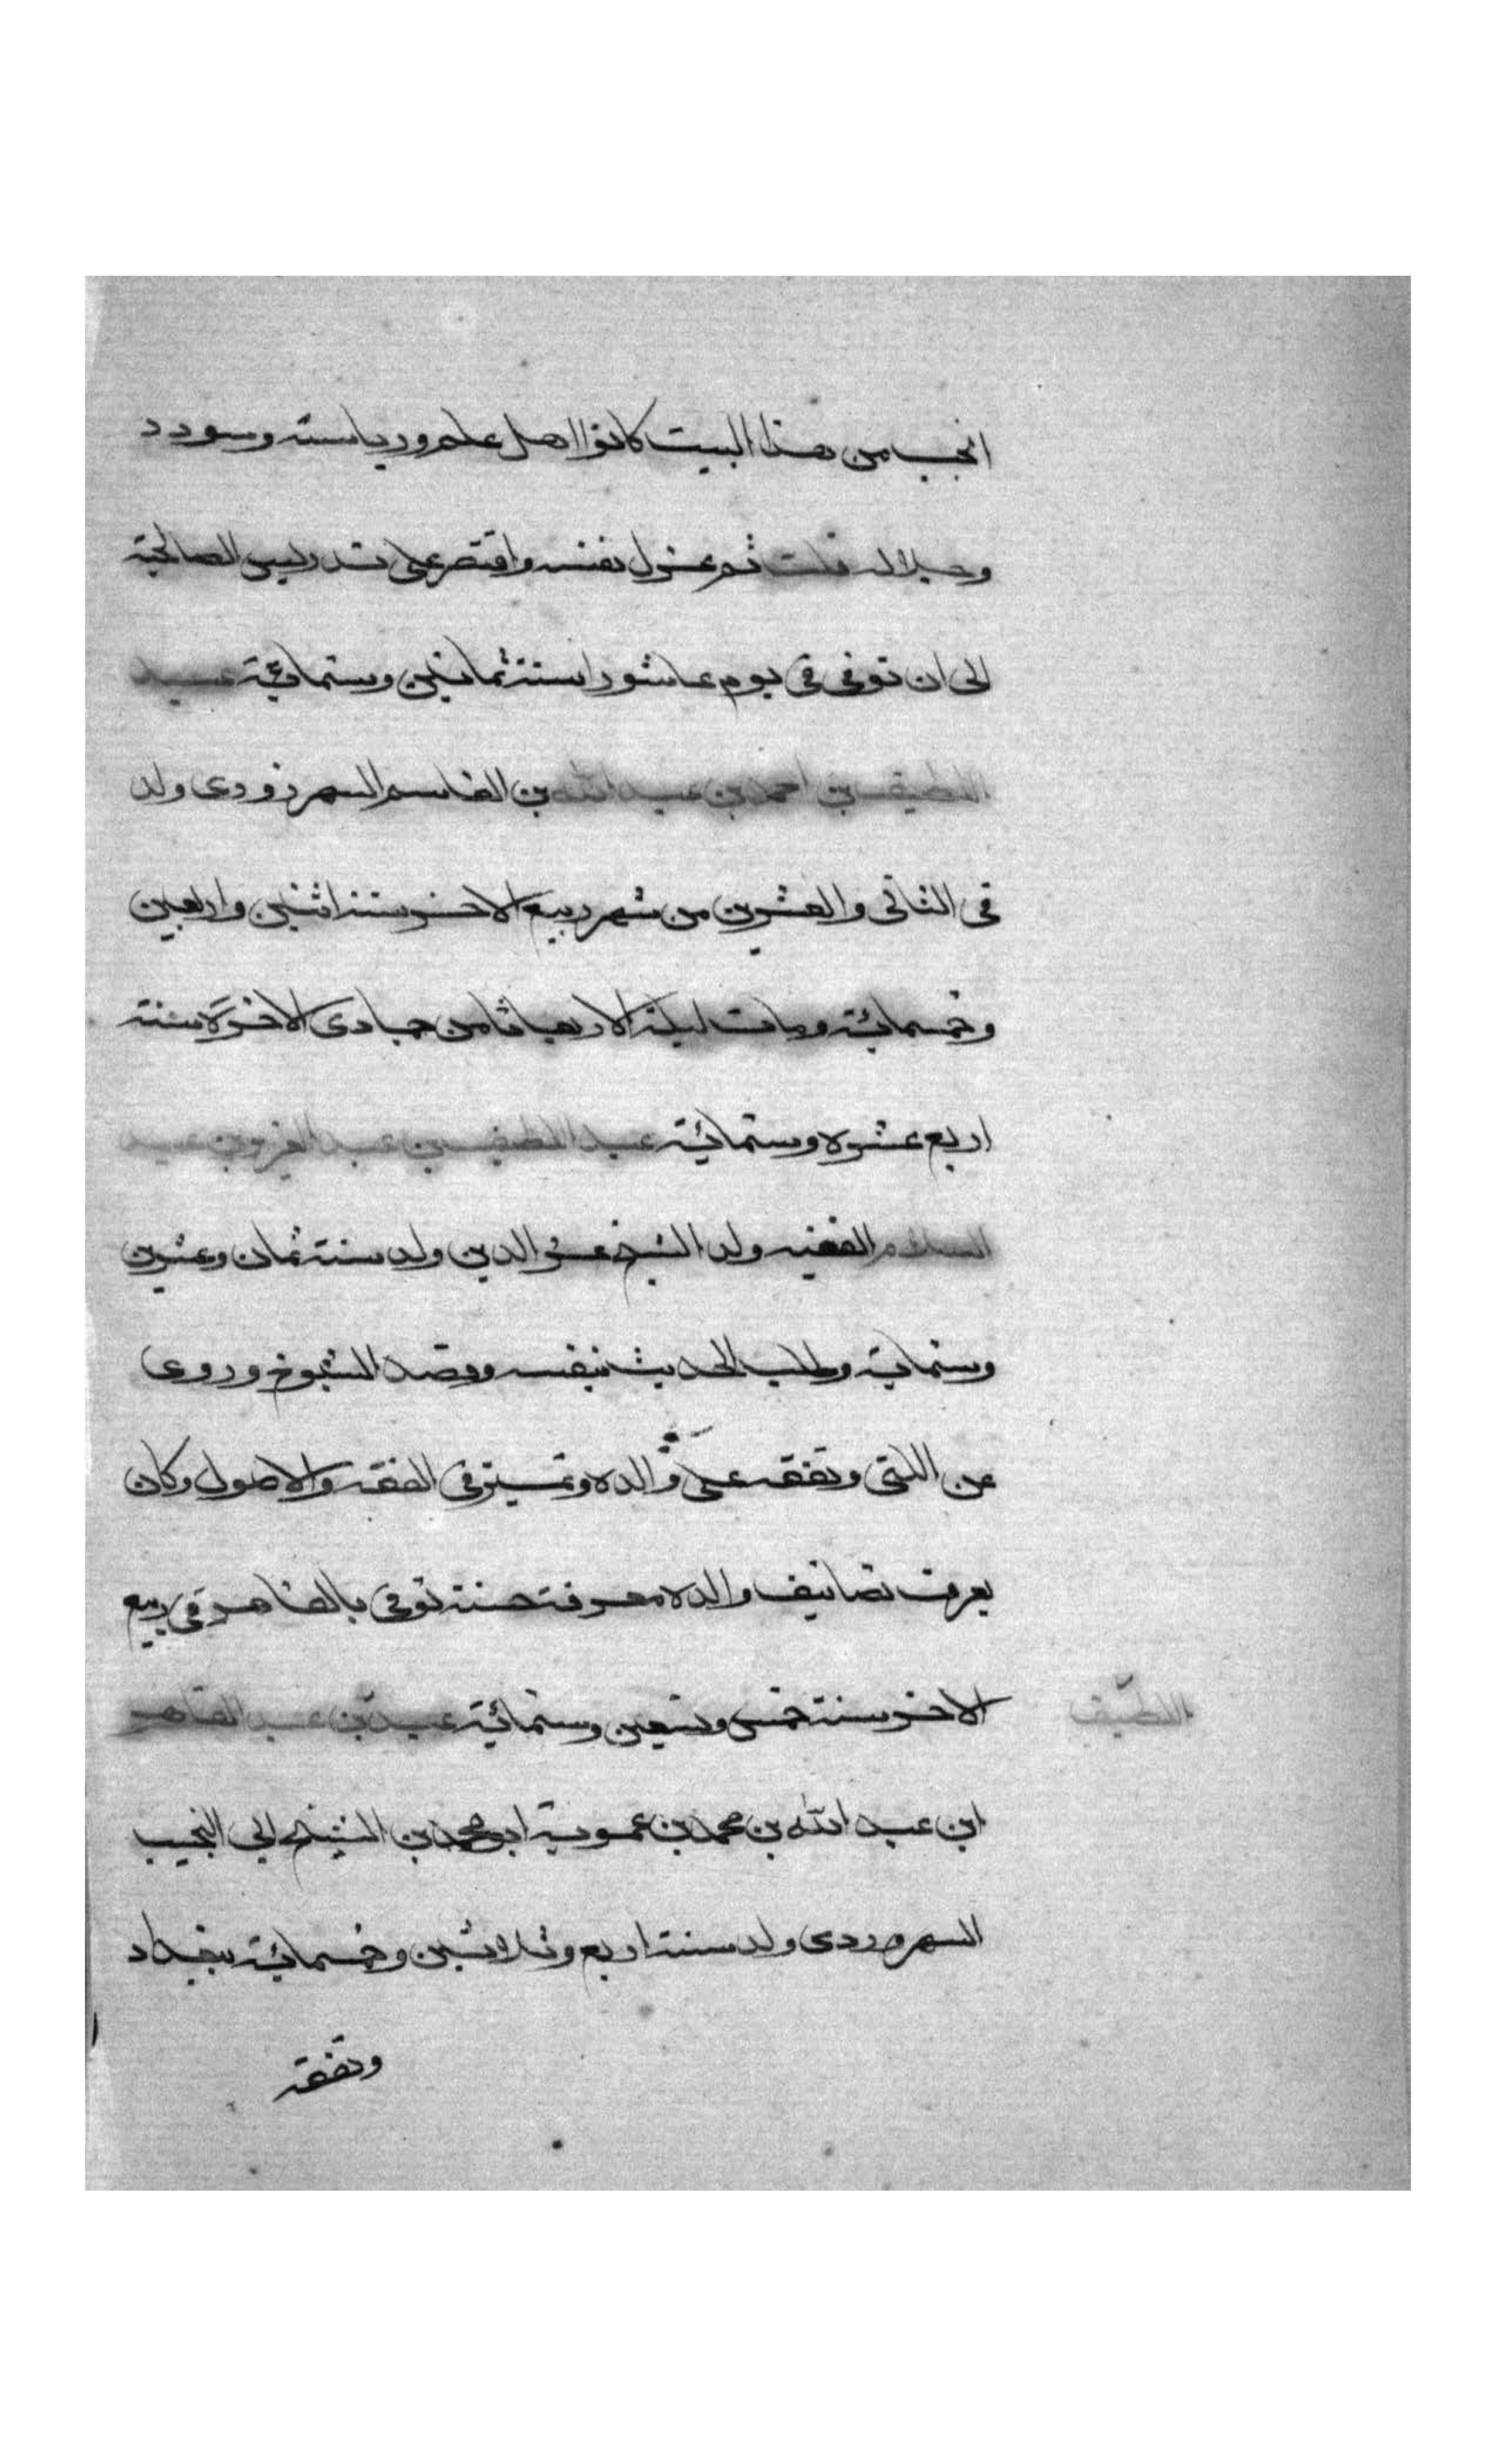 انجب من هذا البيت كانوا اهل علم ورياسته وسودد
وجلاله قلت ثم عزل نفسه واقتصر على تدريس الصالحية
الى ان توفى فى يوم عاشورا سنة ثمانين وستمائية عبد
اللطيف بن احمد بن عبد الله بن القاسم السهرزوردى ولد
فى الثانى والعشرين من شهر ربيع الاخر سنة اثنين واربعين
وخمسمائية ومات ليلة الاربعا ثامن جمادى الاخرة سنة
اربع عشره وستمائية عبد اللطيف بن عبد العزيز بن عبد
السلام الفقيه ولد الشيخ عز الدين ولد سنة ثمان وعشرين
وستماية وطلب الحديث بنفسه وقصد الشيوخ وروى
عن اللتى وتفقه على والده وتميز فى الفقه والاصول وكان
يعرف تصانيف والده معرفة حسنة توفى بالقاهره فى ربيع
الاخر سنة خمس وتسعين وستمائية عبد بن عبد القاهر
اللطيف
ابن عبد الله بن محمد بن عموية ابو محمد بن الشيخ ابى النجيب
السهروردى ولد سنة اربع وثلاثين وخمسمائية ببغداد
وتفقه